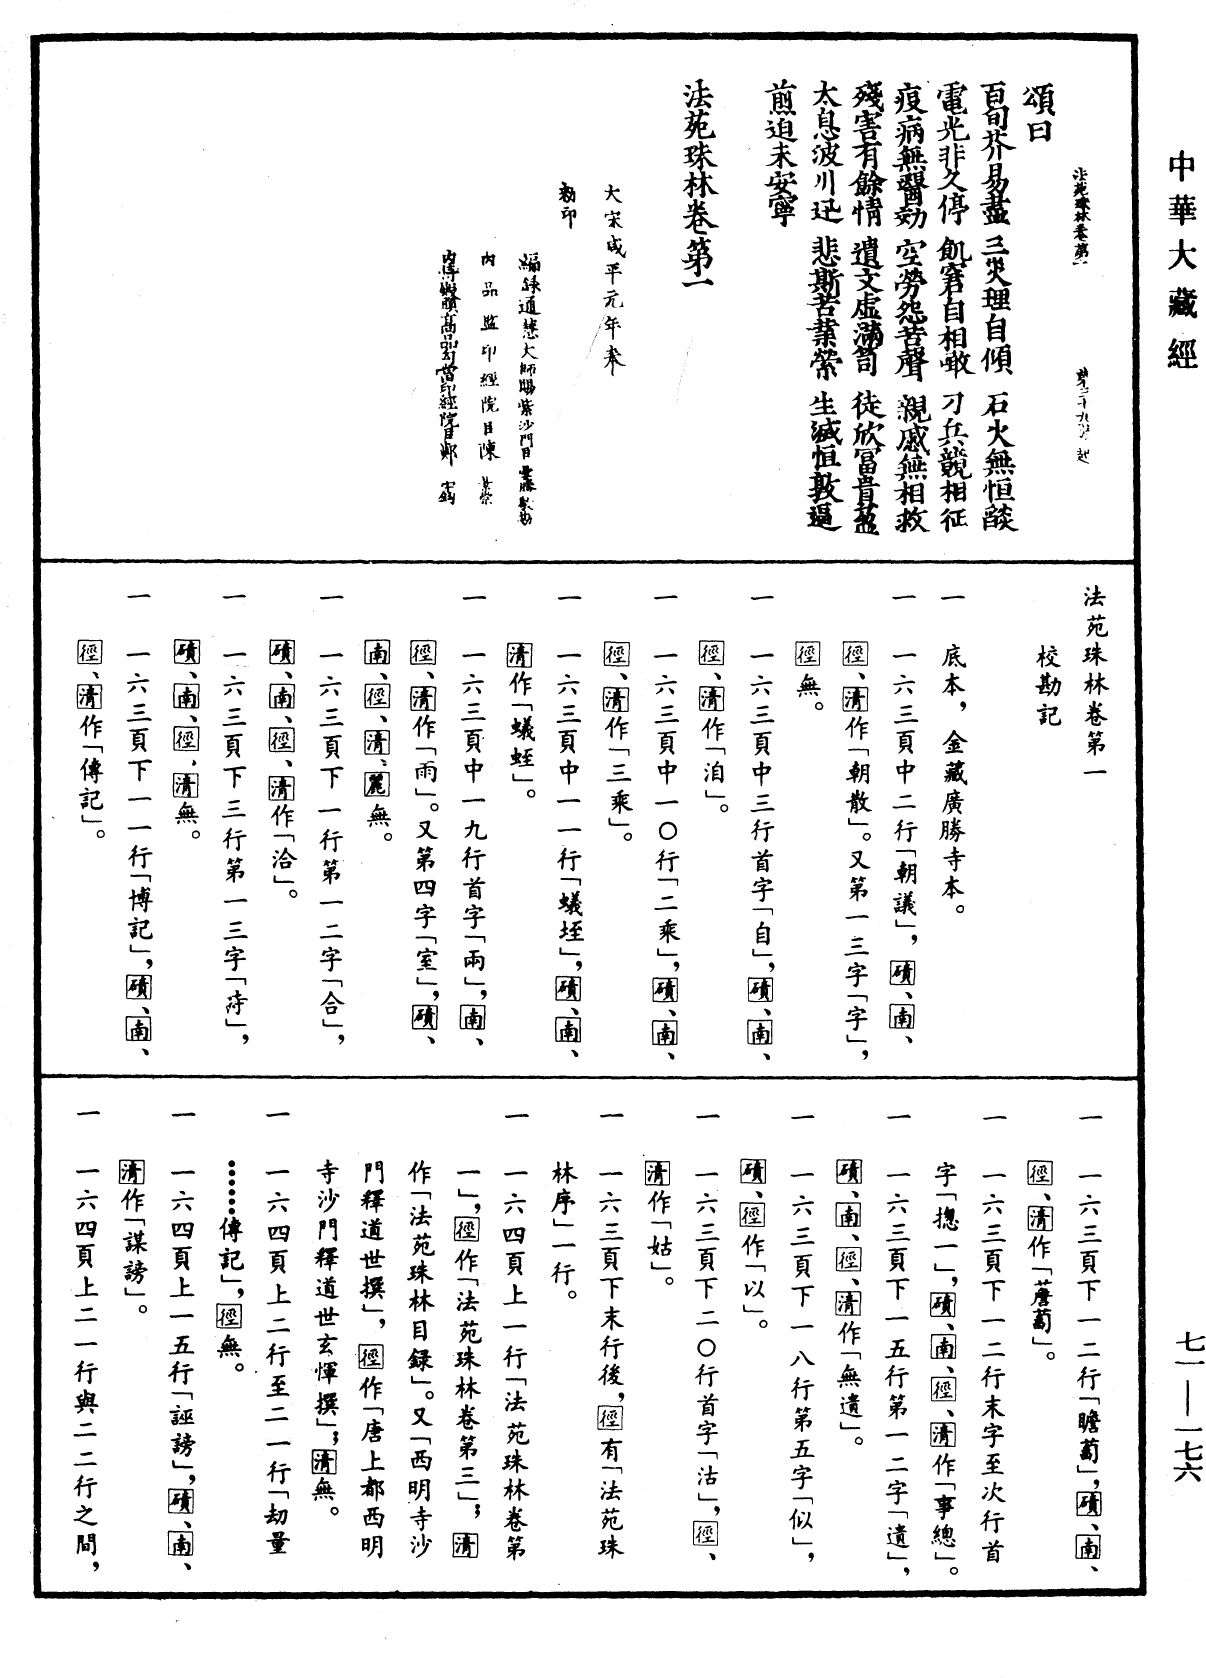 中華大藏經
七一—一七六
法苑珠林卷第一
頌曰
百旬芥易盡 三災理自傾 石火無恒燄
電光非久停 飢窘自相噉 刀兵競相征
疫病無醫効 空勞怨苦聲 親戚無相救
殘害有餘情 遺文虛滿笥 徒欣富貴盈
太息波川迅 悲斯苦業縈 生滅恒敦逼
煎迫未安寧
法苑珠林卷第一
大宋咸平元年奉
勑印
編錄通慧大師賜紫沙門
內品監印經院
高品勾當印經院
法苑珠林卷第一
校勘記
一 底本，金藏廣勝寺本。
一 一六三頁中二行「朝議」，磧、南、
徑、清作「朝散」。又第一三字「字」，
徑無。
一 一六三頁中三行首字「自」，磧、南、
徑、清作「洎」。
一 一六三頁中一〇行「二乘」，磧、南、
徑、清作「三乘」。
一 一六三頁中一一行「蟻垤」，磧、南、
清作「蟻蛭」。
一 一六三頁中一九行首字「兩」，南、
徑、清作「雨」。又第四字「室」，磧、
南、徑、清、麗無。
一 一六三頁下一行第一二字「合」，
磧、南、徑、清作「洽」。
一 一六三頁下三行第一三字「苻」，
磧、南、徑、清無。
一 一六三頁下一一行「博記」，磧、南、
徑、清作「傳記」。
一 一六三頁下一二行「瞻蔔」，磧、南、
徑、清作「薝蔔」。
一 一六三頁下一二行末字至次行首
字「揔一」，磧、南、徑、清作「事總」。
一 一六三頁下一五行第一二字「遺」，
磧、南、徑、清作「無遺」。
一 一六三頁下一八行第五字「似」，
磧、徑作「以」。
一 一六三頁下二〇行首字「沽」，徑、
清作「姑」。
一 一六三頁下末行後，徑有「法苑珠
林序」一行。
一 一六四頁上一行「法苑珠林卷第
一」，徑作「法苑珠林卷第三」；清
作「法苑珠林目録」。又「西明寺沙
門釋道世撰」，徑作「唐上都西明
寺沙門釋道世玄惲撰」；清無。
一 一六四頁上二行至二一行「劫量
……傳記」，徑無。
一 一六四頁上一五行「誣謗」，磧、南、
清作「謀謗」。
一 一六四頁上二一行與二二行之間，